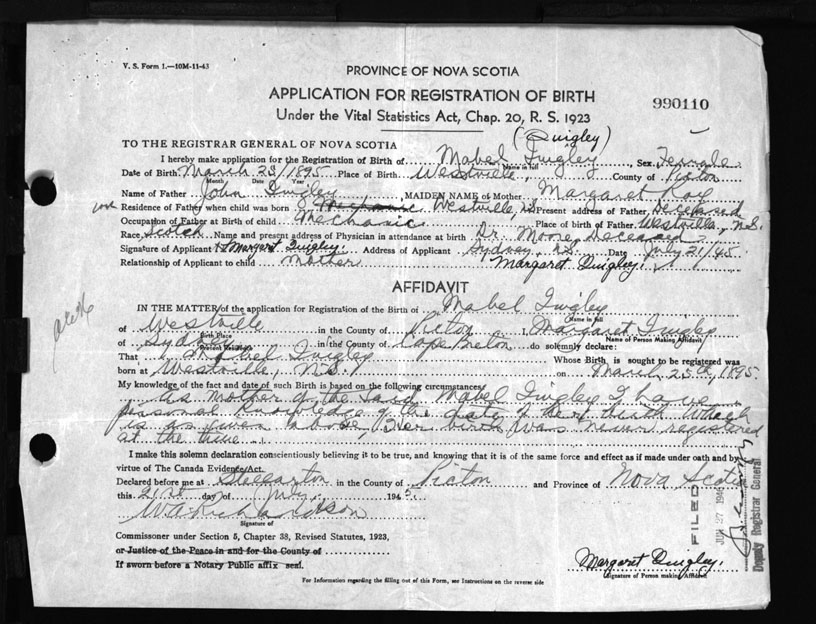 V. S. Form 1.—10M-11-43
PROVINCE OF NOVA SCOTIA
APPLICATION FOR REGISTRATION OF BIRTH
990110
Under the Vital Statistics Act, Chap. 20, R. S. 1923
(Quigley)
TO THE REGISTRAR GENERAL OF NOVA SCOTIA
I hereby make application for the Registration of Birth of Mabel Quigley Sex Female
Name in full
Date of Birth March 23/1895 Place of Birth Westville, County of Pictou
Month Date Year
Name of Father John Quigley MAIDEN NAME of Mother Margaret Roy
Residence of Father when child was born Westville, NS Present address of Father Deceased
Occupation of Father at Birth of child Mechanic Place of birth of Father Westville, N.S.
Race Scotch Name and present address of Physician in attendance at birth Dr. Moore, Deceased
Signature of Applicant Margaret Quigley. Address of Applicant Sydney, N.S. Date July 21/45.
Relationship of Applicant to child Mother Margaret Quigley.
AFFIDAVIT
IN THE MATTER of the application for Registration of the Birth of Mabel Quigley
Name in full
of Westville in the County of Pictou I, Margaret Quigley
Birth Place Name of Person Making Affidavit
of Sydney in the County of Cape Breton do solemnly declare:
Present Residence
That Mabel Quigley Whose Birth, is sought to be registered was
born at Westville, N.S. on March 25th, 1895
My knowledge of the fact and date of such Birth is based on the following circumstances
As mother of the said Mabel Quigley I have
personal knowledge of the date of her birth which
is as given above, Her birth was never registered
at the time
I make this solemn declaration conscientiously believing it to be true, and knowing that it is of the same force and effect as if made under oath and by
virtue of The Canada Evidence Act.
Declared before me at Stellarton in the County of Pictou and Province of Nova Scotia
this 21st day of July 1945.
W A Richardson
Signature of
Commissioner under Section 5, Chapter 38, Revised Statutes, 1923,
or Justice of the Peace in and for the County of
If sworn before a Notary Public affix seal.
Margaret Quigley.
(Signature of Person making Affidavit)
For Information regarding the filling out of this Form, see Instructions on the reverse side
FILED
JUN 27 1946
Deputy Registrar General